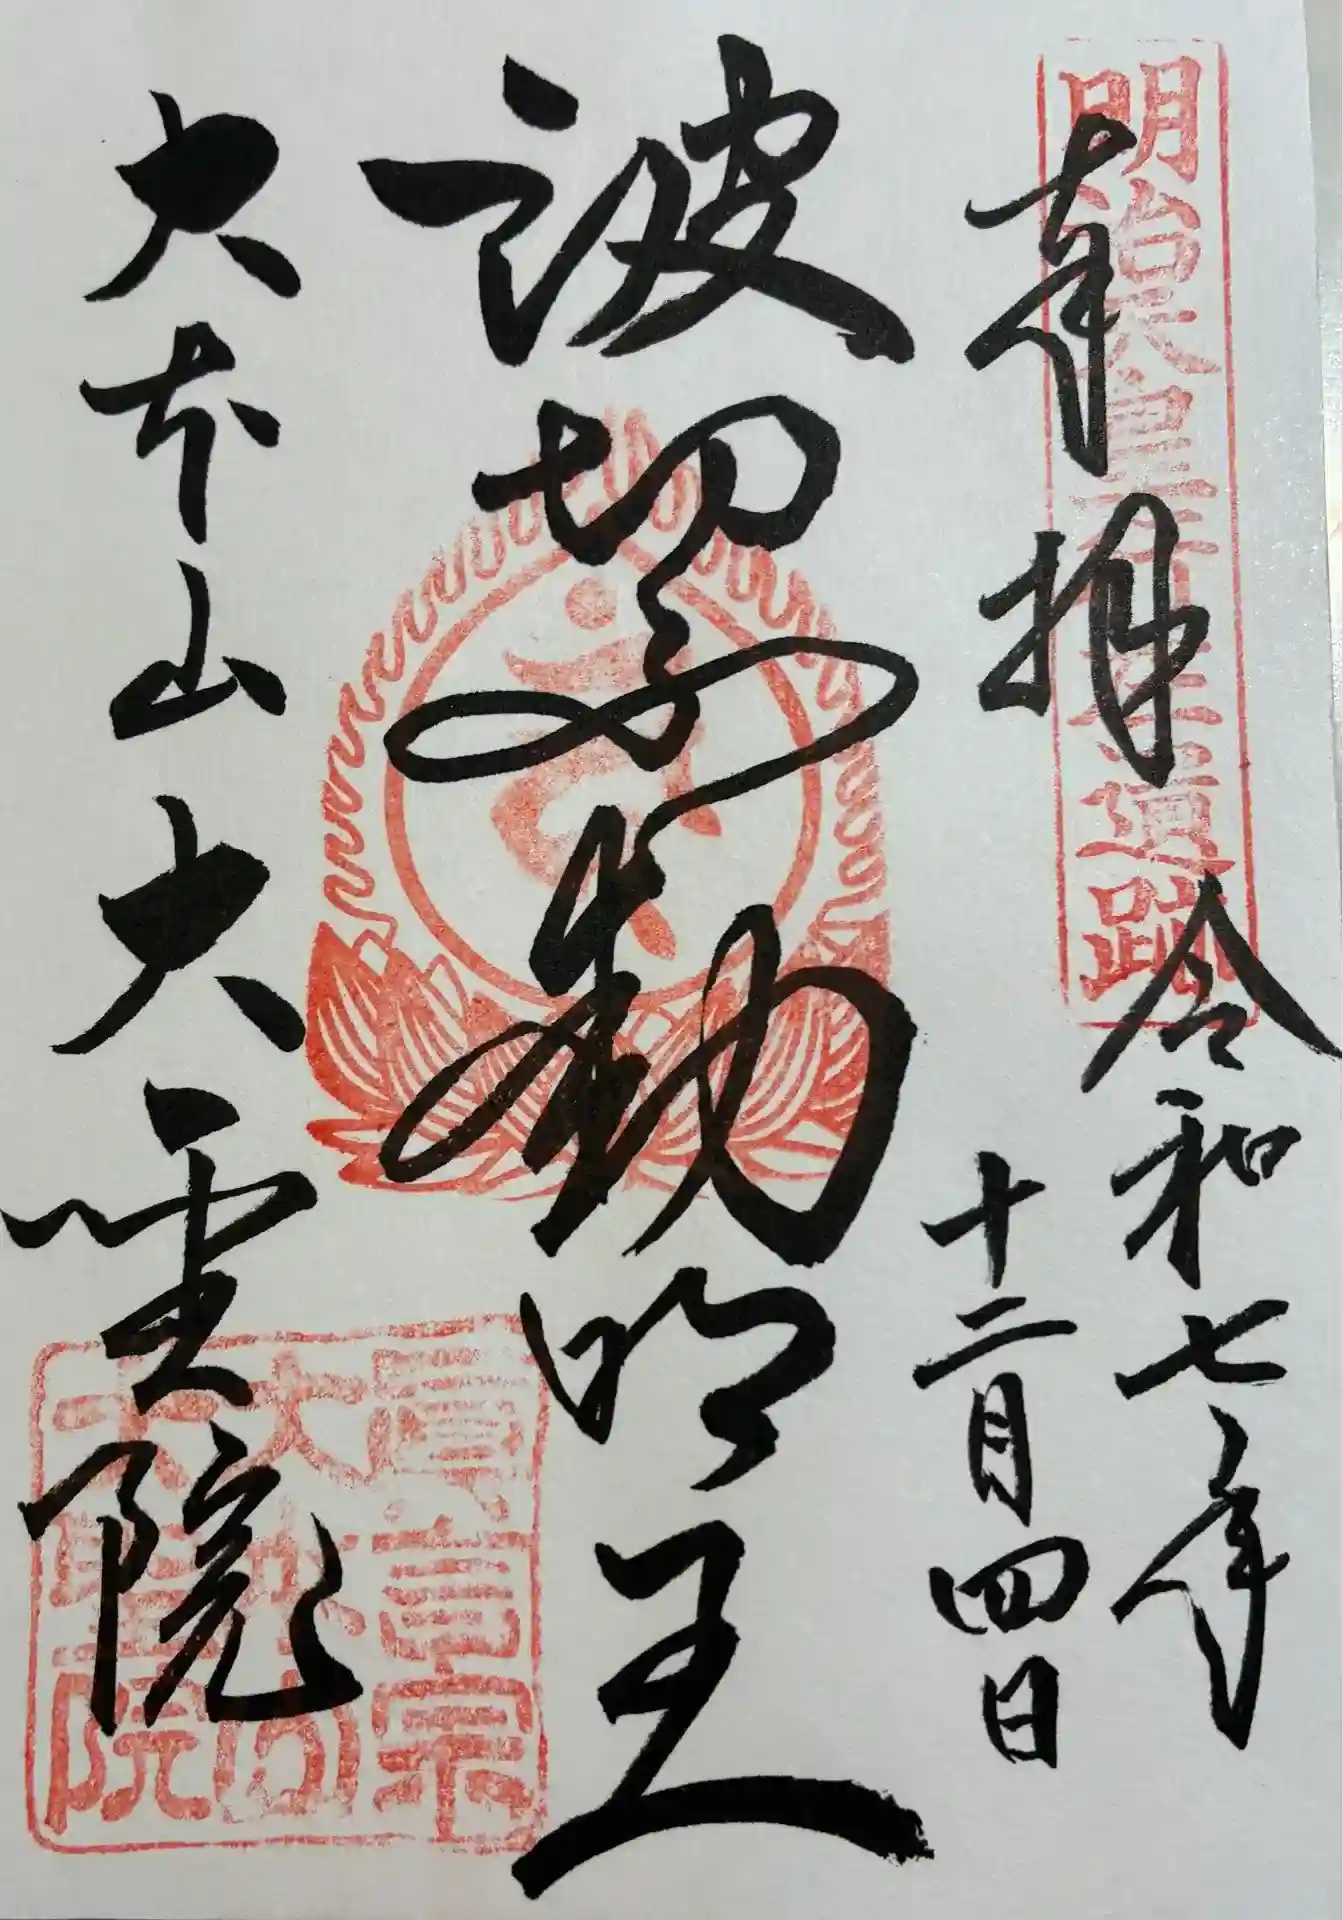 明治天皇遺跡
奉拝
令和七年
十二月四日
波切不動明王
大本山大聖院
真言宗
大本山
大聖院